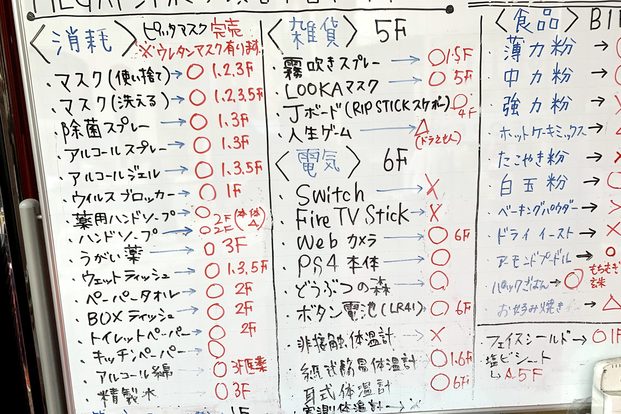 〈消耗〉
ピッタマスク 完売
※ウレタンマスク有ります。
・マスク(使い捨て)→○ 1,2,3F
・マスク(洗える)→○ 1,2,3,5F
・除菌スプレー→○ 1.3F
・アルコールスプレー→○ 1.3F
・アルコールジェル→○ 1,3,5F
・ウイルスブロッカー→○ 1F
・薬用ハンドソープ→○ 2F(本体
・ハンドソープ→○ 2F
・うがい薬→○ 3F
・ウェットティッシュ→○ 1.3.5F
・ペーパータオル→○ 2F
・BOXティッシュ→○ 2F
・トイレットペーパー→○ 2F
・キッチンペーパー→○
・アルコール綿→○ 3F医薬
・精製水→○ 3F
〈雑貨〉 5F
・霧吹きスプレー→○1.5F
・LOOKAマスク→○ 5F
・Jボード(RIPSTICKスケボー)○4F
・人生ゲーム→△(ドラえもん)
〈電気〉 6F
・Switch→×
・Fire TV Stick→×
・Web カメラ→○ 6F
・PS4 本体→○
・どうぶつの森→○
・ボタン電池(LR41)→○ 6F
・非接触体温計→×
→○1.6F
・耳式体温計→○ 6F
〈食品〉
・薄力粉→
・中力粉→
・強力粉→
・ホットケーキミックス→
・たこやき粉→
・白玉粉→
・ベーキングパウダー→
・ドライイースト→×
・アーモンドプードル→○
・パックごはん→○ もちもぎ玄米
・お好み焼き
・フェイスシールド→○1F
・塩ビシート
↳△5F